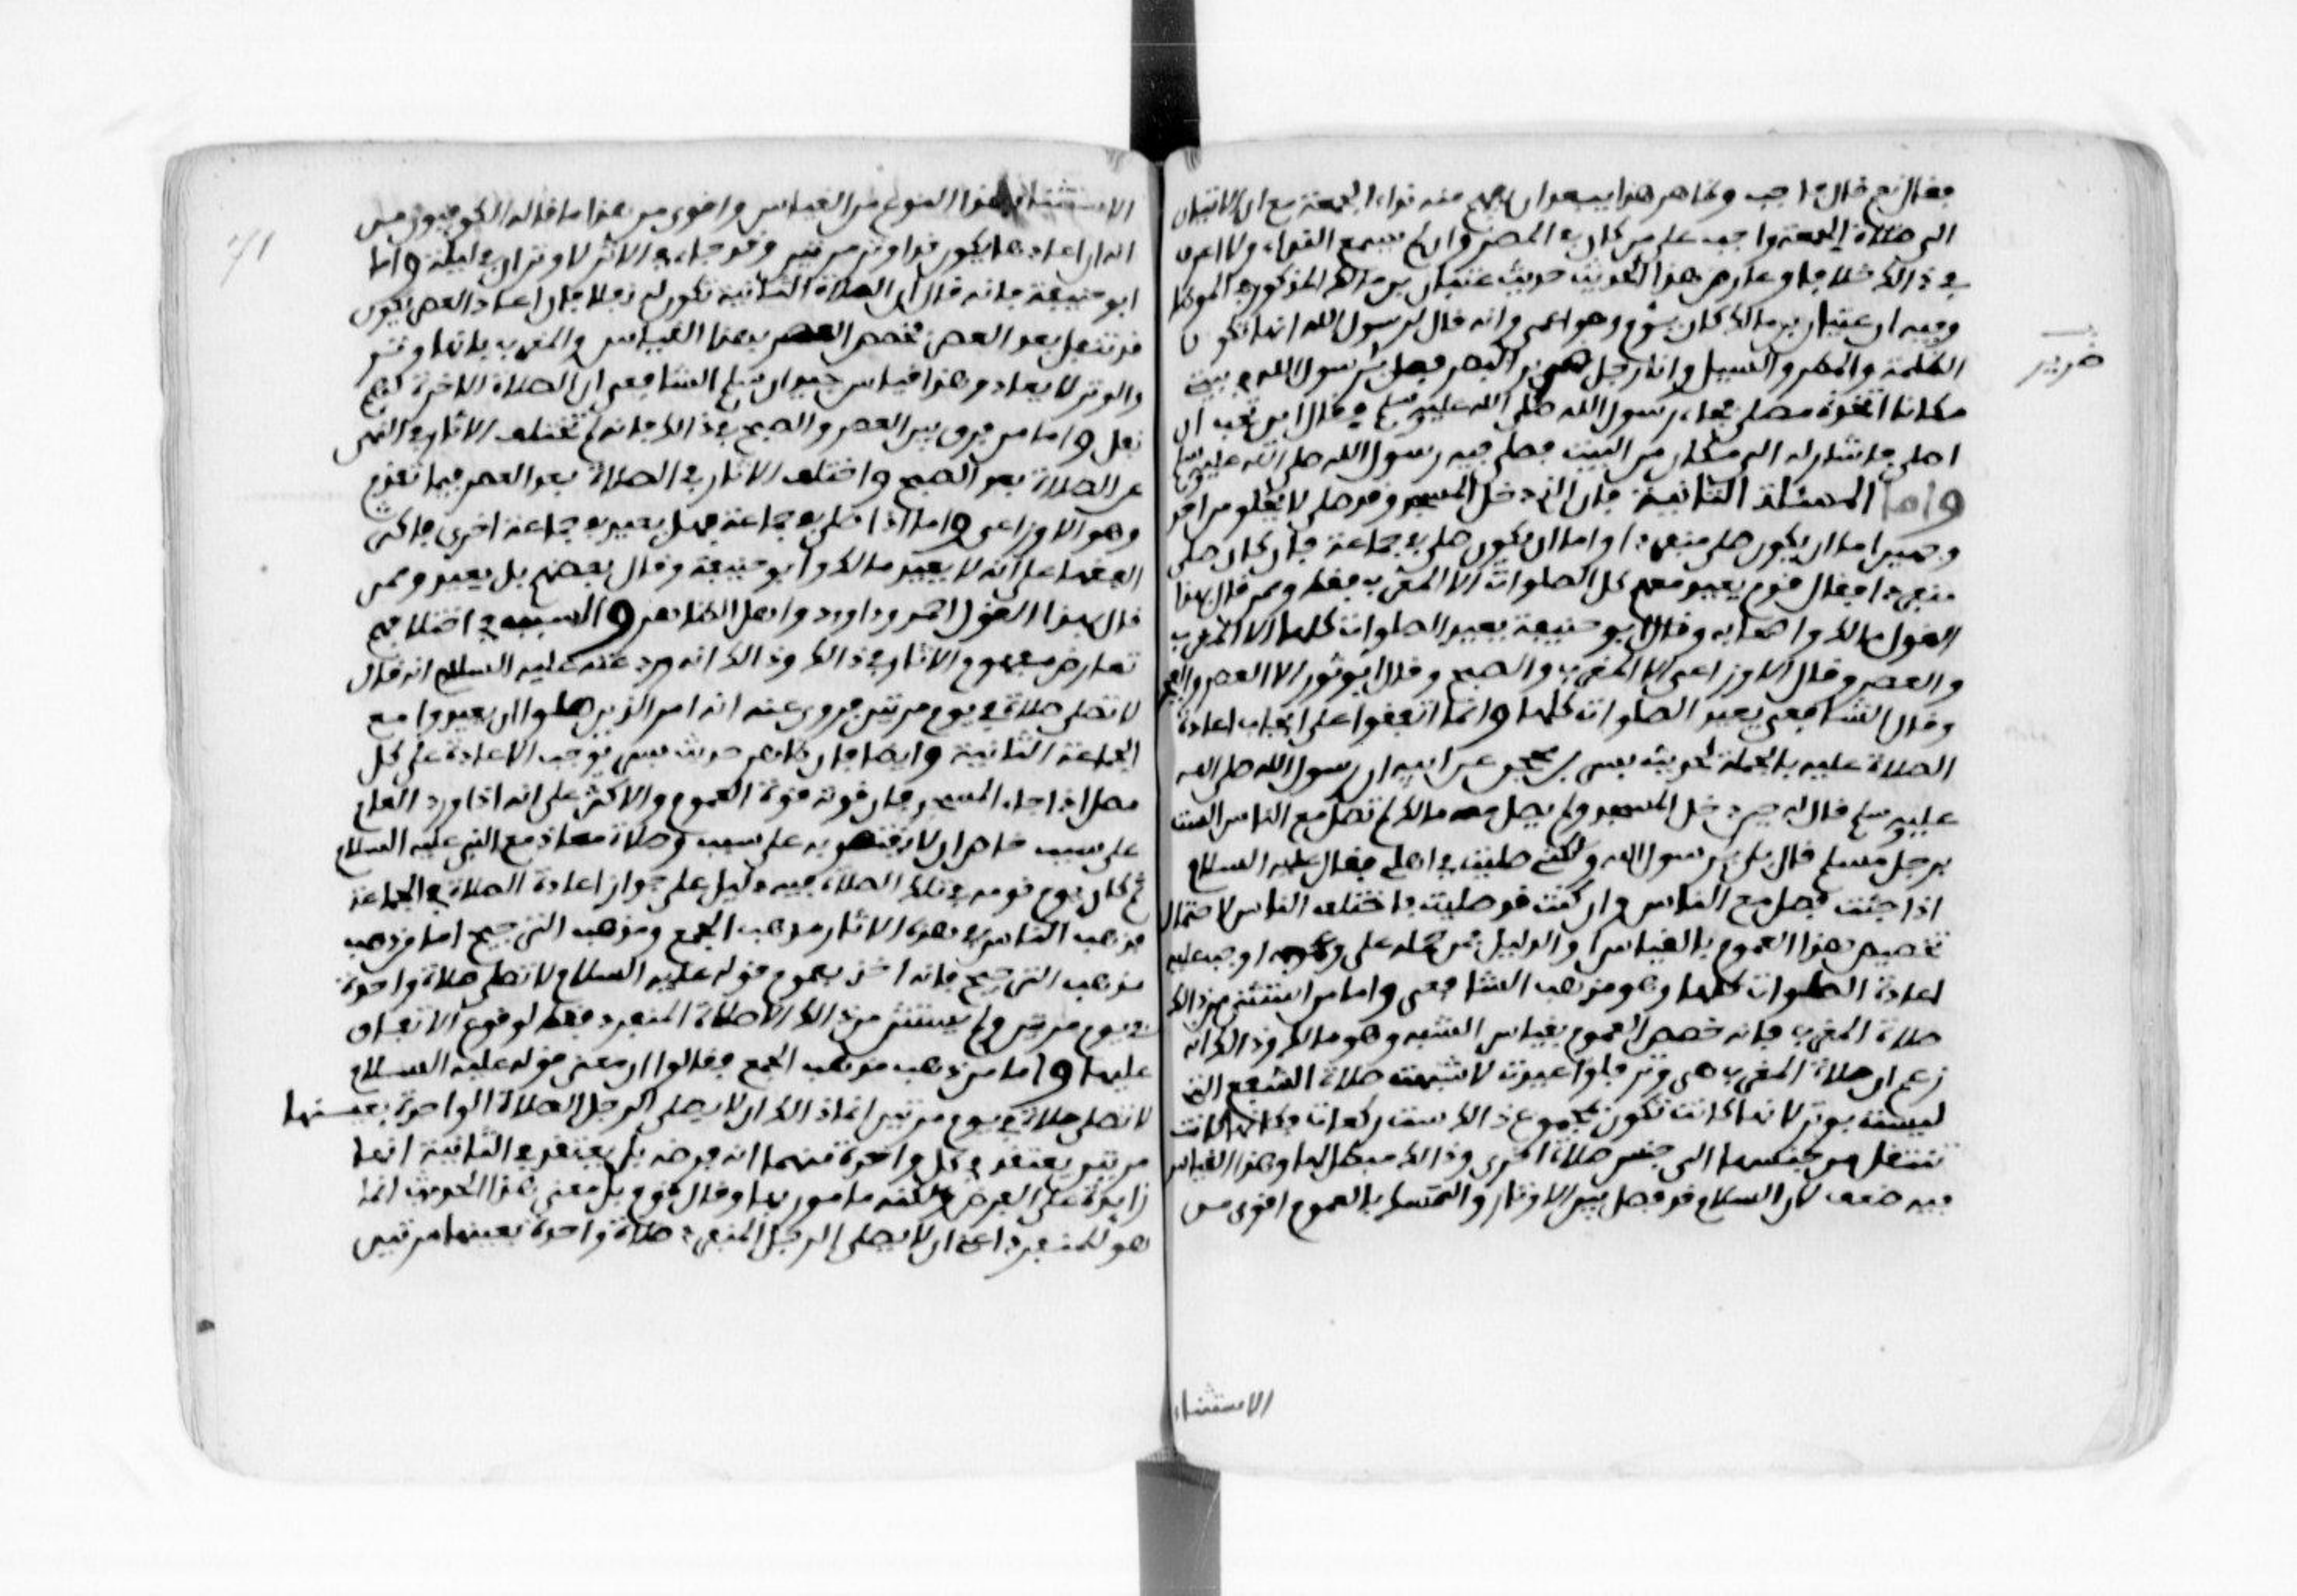 فقال نعم قال فاجب وظاهر هذا يبعد ان يفهم منه نداء الجمعة مع ان الاتيان
الى صلاة الجمعة واجب على من كان في المصر وان لم يسمع النداء ولا اعرف
في ذالك خلافا وعارض هذا الحديث حديث عتبان بن مالك المذكور في الموطا
وفيه ان عتبان بن مالك كان يؤم وهو اعمى وانه قال لرسول الله انها تكون
الظلمة والمطر والسيل وانا رجل ضرير البصر فصل يرسول الله في بيتي
ضرير
مكانا اتخذه مصلى فجاء رسول الله صلى الله عليه وسلم فقال اين تحب ان
اصلي فاشار له الى مكان من البيت فصلى فيه رسول الله صلى الله عليه وسلم
واما المسئلة الثانية فان الذي دخل المسجد وقد صلى لا يخلو من احد
وجهين اما ان يكون صلى منفردا واما ان يكون صلى في جماعة فان كان صلى
منفردا فقال قوم يعيد معهم كل الصلوات الا المغرب فقط وممن قال بهذا
القول مالك واصحابه وقال ابو حنيفة يعيد الصلوات كلها الا المغرب
والعصر وقال الاوزاعي الا المغرب والصبح وقال ابو ثور الا العصر والفجر
وقال الشافعي يعيد الصلوات كلها وانما اتفقوا على ايجاب اعادة
الصلاة عليه بالجملة لحديث بسر بن محجن عن ابيه ان رسول الله صلى الله
عليه وسلم قال له حين دخل المسجد ولم يصل معه مالك لم تصل مع الناس الست
برجل مسلم قال بلى يرسول الله ولكني صليت في اهلي فقال عليه السلام
اذا جئت فصل مع الناس وان كنت قد صليت فاختلف الناس لاحتمال
تخصيص هذا العموم بالقياس او الدليل فمن حمله على عمومه اوجب عليه
اعادة الصلوات كلها وهو مذهب الشافعي واما من استثنى من ذالك
صلاة المغرب فانه خصص العموم بقياس الشبه وهو مالك وذالك انه
زعم ان صلاة المغرب هي وتر فلو اعيدت لاشبهت صلاة الشفع التي
ليست بوتر لانها كانت تكون بمجموع ذالك ست ركعات فكانها كانت
تنتقل من جنسها الى جنس صلاة اخرى وذالك مبطل لها وهذا القياس
فيه ضعف لان السلام قد فصل بين الاوتار والتمسك بالعموم اقوى من
الاستثناء
41
الاستثناء بهذا النوع من القياس واقوى من هذا ما قاله الكوفيون من
انه ان اعادها يكون قد اوتر مرتين وقد جاء في الاثر لا وتران في ليلة واما
ابو حنيفة فانه قال ان الصلاة الثانية تكون له نفلا فان اعاد العصر يكون
قد تنفل بعد العصر فخصص العصر بهذا القياس والمغرب بانها وتر
والوتر لا يعاد وهذا قياس جيد ان سلم الشافعي ان الصلاة الاخرة لهم
نفل واما من فرق بين العصر والصبح في ذالك فانه لم تختلف الاثار في النهي
عن الصلاة بعد الصبح واختلف الاثار في الصلاة بعد العصر فيما تقدم
وهو الاوزاعي واما اذا صلى في جماعة فهل يعيد في جماعة اخرى فاكثر
الفقهاء على انه لا يعيد مالك وابو حنيفة وقال بعضهم بل يعيد وممن
قال بهذا القول احمد وداوود واهل الظاهر والسبب في اختلافهم
تعارض مفهوم الاثار في ذالك وذالك انه ورد عنه عليه السلام انه قال
لا تصلى صلاة في يوم مرتين وروي عنه انه امر الذين صلوا ان يعيدوا مع
الجماعة الثانية وايضا فان ظاهر حديث بسر يوجب الاعادة على كل
مصل اذا جاء المسجد فان قوته قوة العموم والاكثر على انه اذا ورد العام
على سبب خاص ان لا يقتصر به على سبب وصلاة معاذ مع النبي عليه السلام
ثم كان يؤم قومه في تلك الصلاة فيه دليل على جواز اعادة الصلاة في الجماعة
فذهب الناس في هذه الاثار مذهب الجمع ومذهب الترجيح اما من ذهب
مذهب الترجيح فانه اخذ بعموم قوله عليه السلام لا تصلى صلاة واحدة
في يوم مرتين ولم يستثن من ذالك الا صلاة المنفرد فقط لوقوع الاتفاق
عليها واما من ذهب مذهب الجمع فقالوا ان معنى قوله عليه السلام
لا تصلى صلاة في يوم مرتين انما ذالك ان لا يصلي الرجل الصلاة الواحدة بعينها
مرتين يعتقد في كل واحدة منهما انه فرضه بل يعتقد في الثانية انها
زايدة على الفرض ولكنه مامور بها وقال قوم بل معنى هذا الحديث انما
هو للمنفرد اعني ان لا يصلي الرجل المنفرد صلاة واحدة بعينها مرتين